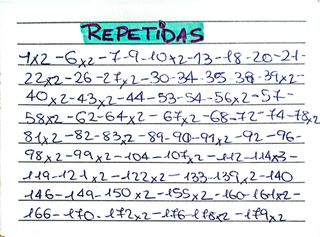 REPETIDAS
1x2-6x2-7-9-10x2-13-18-20-21-
22x2-26-27x2-30-34-35-38-39x2-
40x2-43x2-44-53-54-56x2-57-
58x2-62-64x2-67x2-68-72-74-78x2
81x2-82-83x2-89-90-91x2-92-96-
98x2-99x2-104-107x2-112-114x3-
119-121x2-122x2-133-139x2-140
146-149-150x2-155x2-160-161x2-
166-170-172x2-176-178x2-179x2